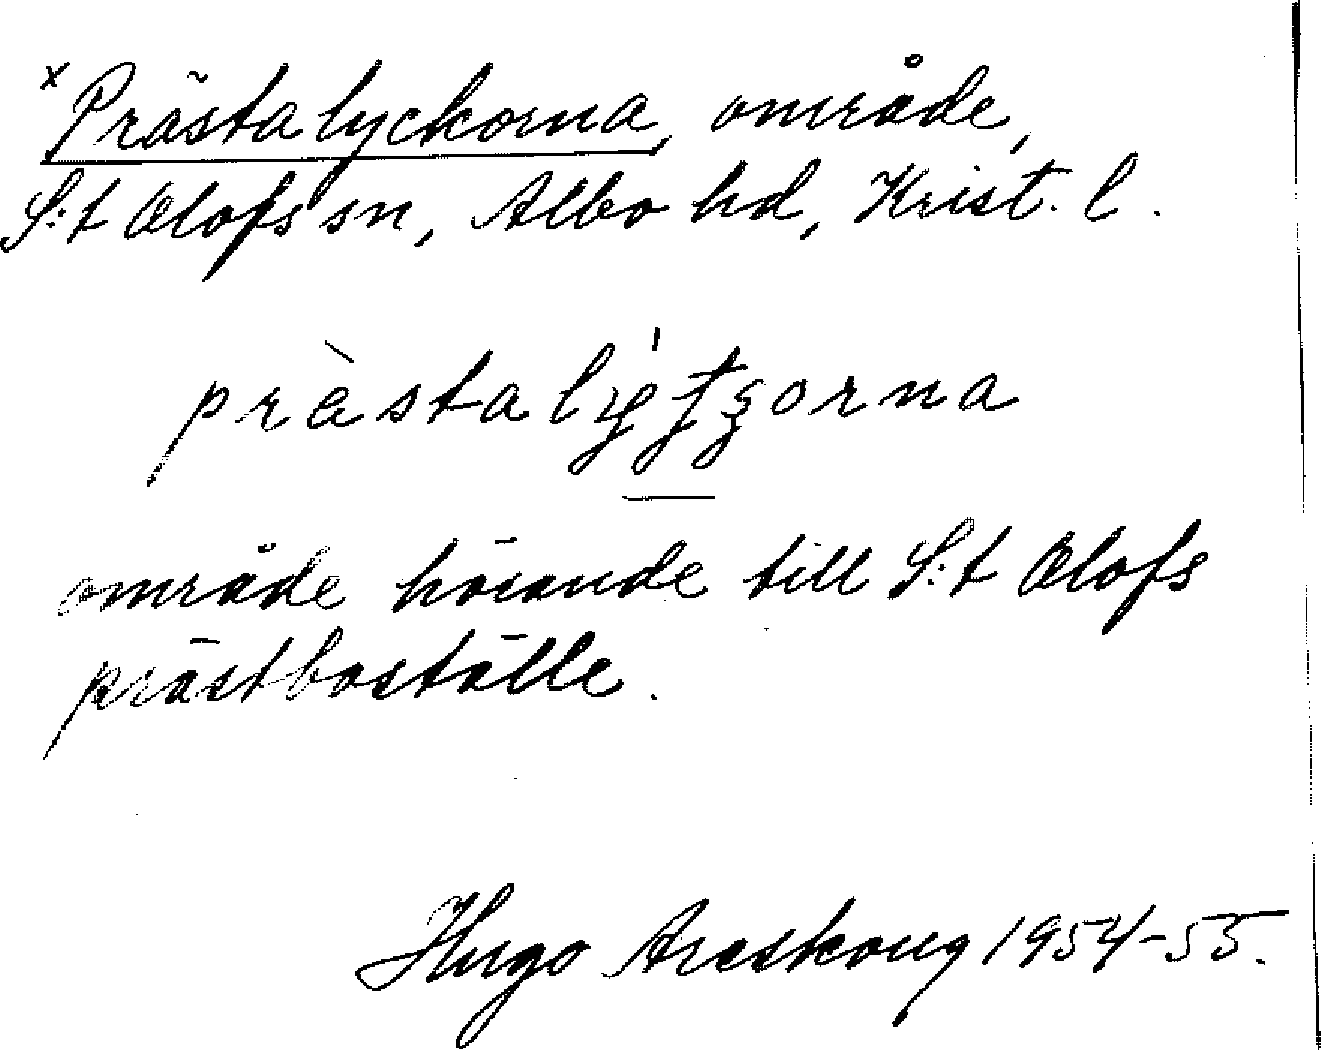 x Prästalyckorna, område,
S:t Olofs sn, Albo hd, Krist. l.
område hörande till S:t Olofs
prästboställe.
Hugo Areskoug 1954-55.